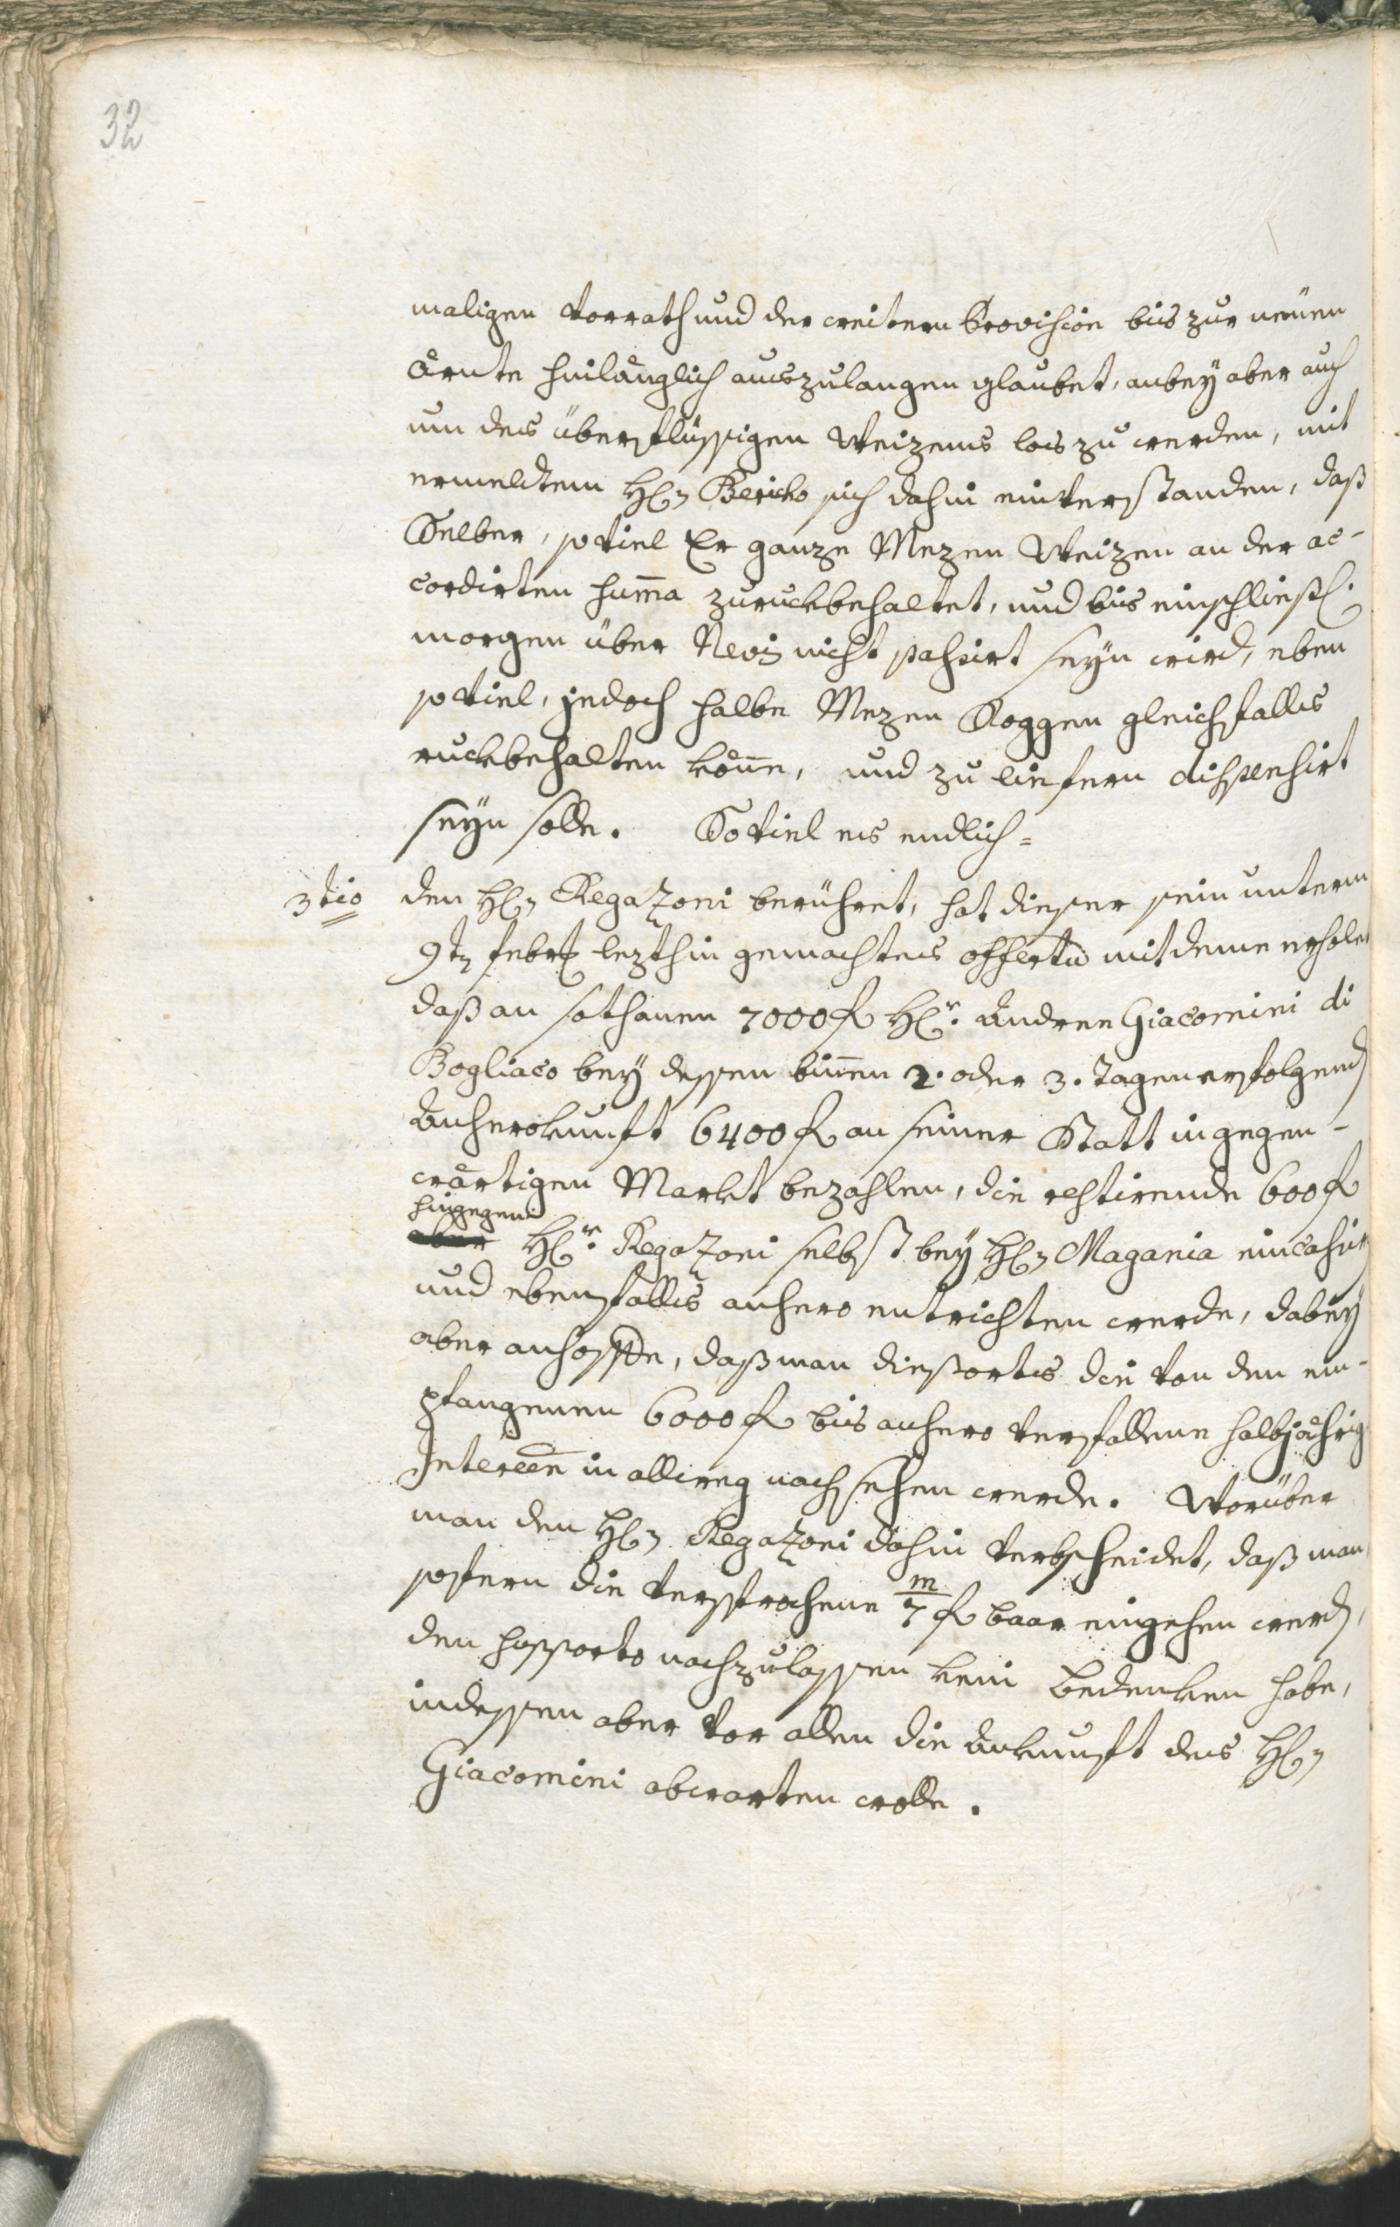 32
maligen Vorrath und der weitern Provision bis zur neüen
Ärnte hinlänglich auszulangen glaubet, anbeÿ aber auch
um des überflüssigen Weizens los zu werden, mit
ermeldtem H: sich dahin einverstanden, daß
Selber, soviel Er ganze Mezen Weizen an der ac-
cordirten Suma zuruckbehaltet, und bis einschließl:
morgen über Nevis nicht passirt seÿn wird, eben
soviel, jedoch halbe Mezen Roggen gleichfalls
ruckbehalten köne, und zu liefern dispensirt
seÿn solle. Soviel es endlich=
3tio den H: Regazoni berühret, hat dieser sein unterm
9t: Febr: lezthin gemachtes offerta mit deme erholet
daß an sothanen 7000 f H:r Andree Giacomini di
Bogliaco beÿ dessen binen 2. oder 3. Tagen erfolgend
Anherokunft 6400 f an seiner Statt in gegen-
wärtigen Markt bezahlen, die restirende 600 f
hingegen
aber H:r Regazoni selbst beÿ H: Magania
und ebenfalls anhero entrichten werde, dabeÿ
aber anhoffe, daß man diesorts die von den em-
pfangenen 6000 f bis anhero verfallene halbjährig
Interessen in allweg nachsehen werde. Worüber
man den H: Regazoni dahin verbscheidet, daß man
sofern die versprochene m/7 f baar eingehen werd,
den nachzulassen kein Bedenken habe,
indessen aber vor allen die Ankunft des H:
Giacomini abwarten wolle.